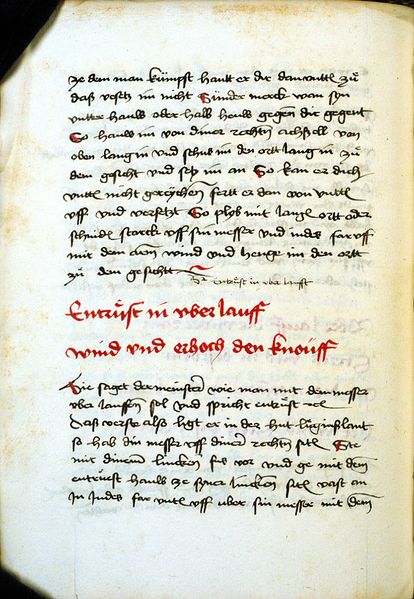 ze dem man kumpst hautt er dir dan unttn zů
das versetz im nicht Sunder merck wan syn
untter hauw oder halb hauw gegen dir gegent
So hauw im von diner rechtn achsell von
oben lang in und schus im den ortt lang in zů
dem gesicht und setz im an So kan er dich
untn nicht gereychen fertt er dan von unttn
uff und versetzt So plyb mit langn ortt oder
schniden starck uff sin messer und indes far uff
mit dem arm wind und henge im den ortt
zů dem gesicht
entrüst in uber laufft
Entrüst in uber lauff
wind und erhoch den knouff
Hie saget der meister wie man mit dem messer
uber lauffen sol und spricht entrüst etc
Das verste also ligt er in der hut luginslant
so hab din messer uff diner rechten sitn Ste
mit dinem lincken fus vor und ge mit dem
entruest hauw ze syner lincken sitn vast an
In Indes far unttn uff uber sin messer mit dem